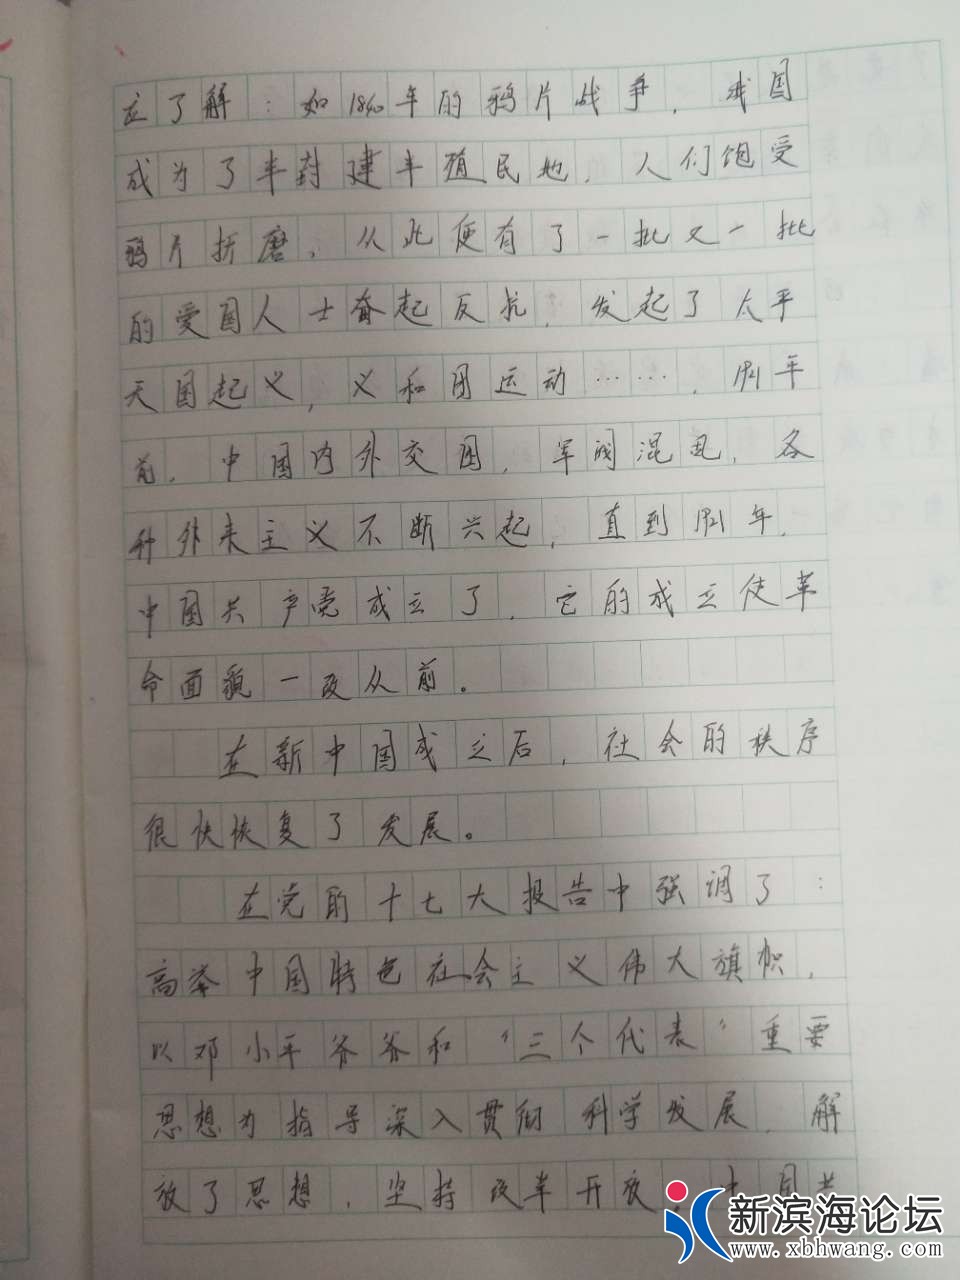 应了解：如1840年的鸦片战争，我国
成为了半封建半殖民地，人们饱受
鸦片折磨，从此便有了一批又一批
的爱国人士奋起反抗，发起了太平
天国起义，义和团运动……，1921年
前，中国内外交困，军阀混乱，各
种外来主义不断兴起，直到1921年，
中国共产党成立了，它的成立使革
命面貌一改从前。
在新中国成立后，社会的秩序
很快恢复了发展。
在党的十七大报告中强调了：
高举中国特色社会主义伟大旗帜，
以邓小平爷爷和“三个代表”重要
思想为指导深入贯彻科学发展，解
放了思想，坚持改革开放，中国共
新滨海论坛
www.xbhwang.com